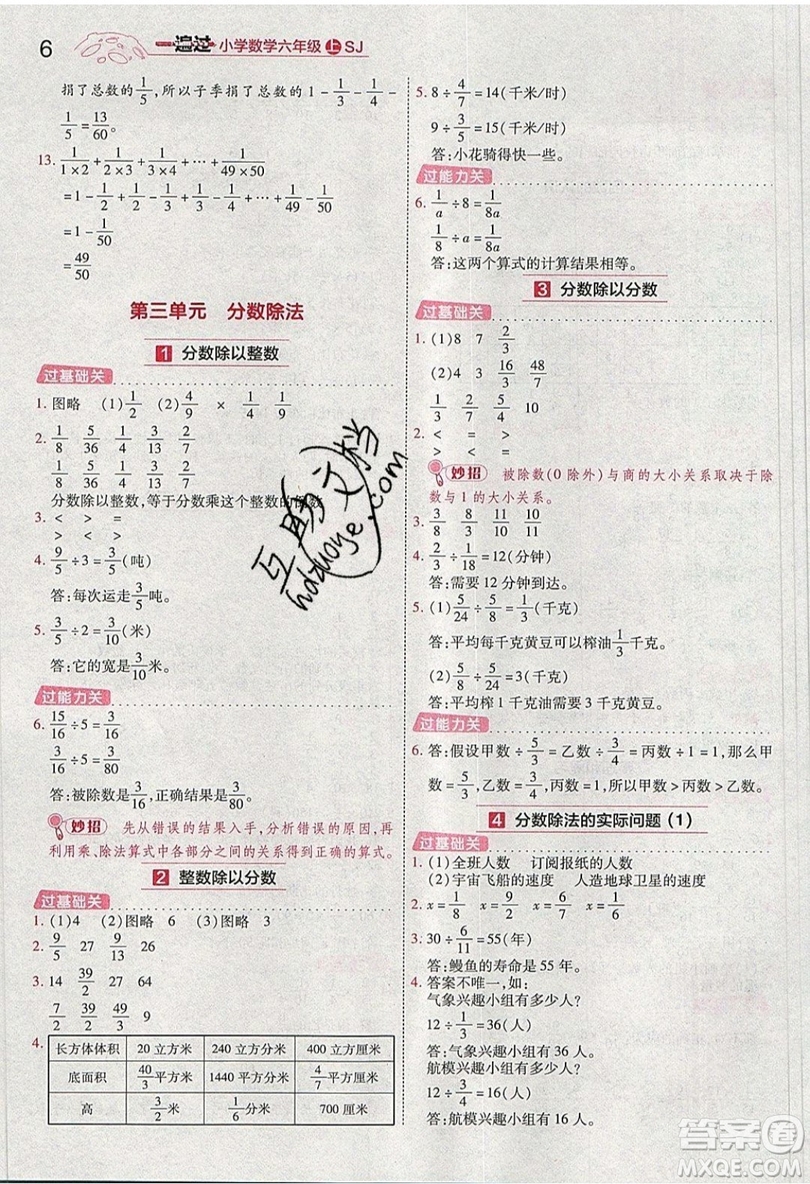 6 一遍过 小学数学六年级 上 SJ
捐了总数的1/5,所以子季捐了总数的1-1/3-1/4-
1/5=13/60。
13. 1/(1×2)+1/(2×3)+1/(3×4)+…+1/(49×50)
=1-1/2+1/2-1/3+…+1/49-1/50
=1-1/50
=49/50
第三单元 分数除法
1 分数除以整数
过基础关
1. 图略 (1)1/2 (2)4/9 × 1/4 1/9
2. 1/8 5/36 1/4 3/13 2/7
1/8 5/36 1/4 3/13 2/7
分数除以整数,等于分数乘这个整数的倒数
3. > > =
< < =
4. 9/5÷3=3/5(吨)
答:每次运走3/5吨。
5. 3/5÷2=3/10(米)
答:它的宽是3/10米。
过能力关
6. 15/16÷5=3/16
3/16÷5=3/80
答:被除数是3/16,正确结果是3/80。
妙招 先从错误的结果入手,分析错误的原因,再
利用乘、除法算式中各部分之间的关系得到正确的算式。
2 整数除以分数
过基础关
1. (1)4 (2)图略 6 (3)图略 3
2. 9/5 27 9/13 26
3. 14 39/2 27 64
7/2 29/2 39/2 9
4.
长方体体积 20立方米 240立方分米 400立方厘米
底面积 40/3平方米 1440平方分米 4/7平方厘米
高 3/2米 1/6分米 700厘米
5. 8÷4/7=14(千米/时)
9÷3/5=15(千米/时)
答:小花骑得快一些。
过能力关
6. 1/a÷8=1/8a
1/8÷a=1/8a
答:这两个算式的计算结果相等。
3 分数除以分数
过基础关
1. (1)8 7 2/3
(2)4 3 16/3 48/7
1/3 7/8 2/5 10
2. < = >
< = >
妙招 被除数(0除外)与商的大小关系取决于除
数与1的大小关系。
3. 3/8 8/3 11/10 10/11
4. 4/5÷1/15=12(分钟)
答:需要12分钟到达。
5. (1)5/24÷5/8=1/3(千克)
答:平均每千克黄豆可以榨油1/3千克。
(2)5/8÷5/24=3(千克)
答:平均榨1千克油需要3千克黄豆。
过能力关
6. 答:假设甲数÷5/3=乙数÷3/4=丙数÷1=1,那么甲
数=5/3,乙数=3/4,丙数=1,所以甲数>丙数>乙数。
4 分数除法的实际问题(1)
过基础关
1. (1)全班人数 订阅报纸的人数
(2)宇宙飞船的速度 人造地球卫星的速度
2. x=1/8 x=9/2 x=2/5
3. 30÷6/11=55(年)
答:鳗鱼的寿命是55年。
4. 答案不唯一,如:
气象兴趣小组有多少人?
12÷1/3=36(人)
答:气象兴趣小组有36人。
航模兴趣小组有多少人?
12÷3/4=16(人)
答:航模兴趣小组有16人。
互助文档
hdzuoye.com
答案圈
MXQE.COM